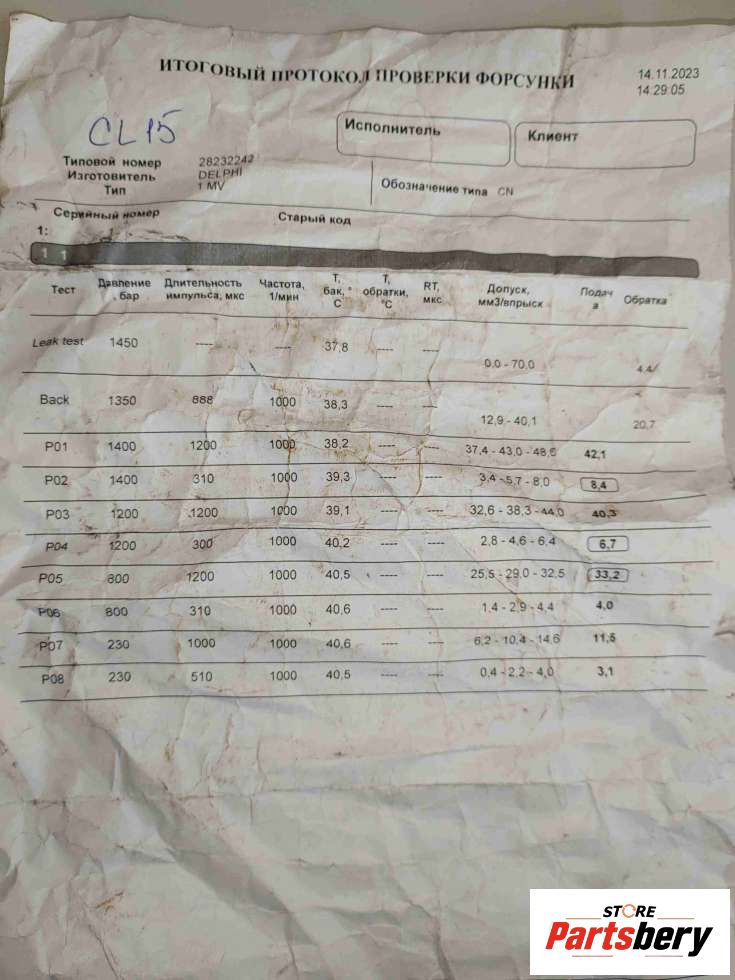 ИТОГОВЫЙ ПРОТОКОЛ ПРОВЕРКИ ФОРСУНКИ
14.11.2023
14:29:05
CL15
Исполнитель Клиент
Типовой номер 28232242
Изготовитель DELPHI
Тип 1 MV
Обозначение типа CN
Серийный номер Старый код
1:
1 1
Тест Давление, бар Длительность импульса, мкс Частота, 1/мин Т, бак, °С Т, обратки, °С RT, мкс Допуск, мм3/впрыск Подача Обратка
Leak test 1450 ---- ---- 37,8 ---- ---- 0,0 - 70,0 4,4
Back 1350 888 1000 38,3 ---- ---- 12,9 - 40,1 20,7
P01 1400 1200 1000 38,2 ---- ---- 37,4 - 43,0 - 48,6 42,1
P02 1400 310 1000 39,3 ---- ---- 3,4 - 5,7 - 8,0 8,4
P03 1200 1200 1000 39,1 ---- ---- 32,6 - 38,3 - 44,0 40,3
P04 1200 300 1000 40,2 ---- ---- 2,8 - 4,6 - 6,4 6,7
P05 800 1200 1000 40,5 ---- ---- 25,5 - 29,0 - 32,5 33,2
P06 800 310 1000 40,6 ---- ---- 1,4 - 2,9 - 4,4 4,0
P07 230 1000 1000 40,6 ---- ---- 6,2 - 10,4 - 14,6 11,5
P08 230 510 1000 40,5 ---- ---- 0,4 - 2,2 - 4,0 3,1
STORE
Partsbery